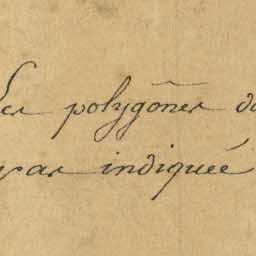 Les polygones do
pas indiquée